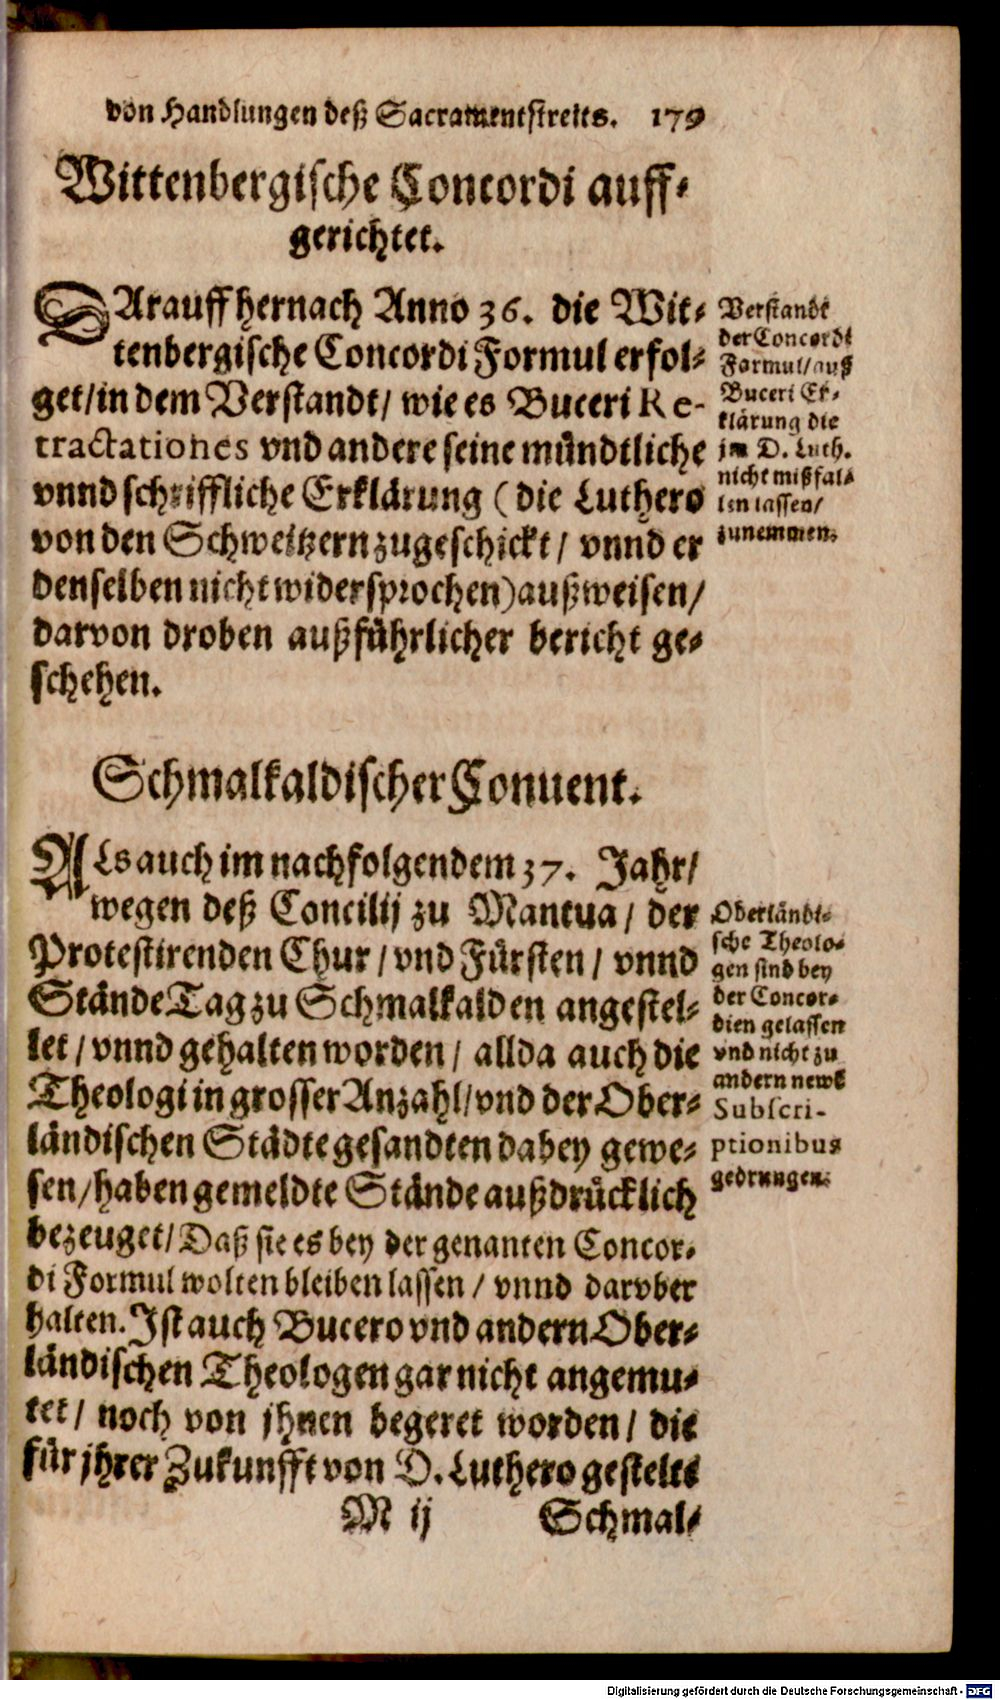 von Handlungen deß Sacramentstreits. 179
Wittenbergische Concordi auff-
gerichtet.
DArauff hernach Anno 36. die Wit-
tenbergische Concordi Formul erfol-
get/ in dem Verstandt/ wie es Buceri Re-
tractationes vnd andere seine mündtliche
vnnd schriffliche Erklärung (die Luthero
von den Schweitzern zugeschickt/ vnnd er
denselben nicht widersprochen) außweisen/
darvon droben außführlicher bericht ge-
schehen.
Verstandt
der Concordi
Formul/ auß
Buceri Er-
klärung die
jm D. Luth.
nicht mißfal-
len lassen/
zunemmen.
Schmalkaldischer Conuent.
ALs auch im nachfolgendem 37. Jahr/
wegen deß Concilij zu Mantua/ der
Protestirenden Chur/ vnd Fürsten/ vnnd
Stände Tag zu Schmalkalden angestel-
let/ vnnd gehalten worden/ allda auch die
Theologi in grosser Anzahl/ vnd der Ober-
ländischen Städte gesandten dabey gewe-
sen/ haben gemeldte Stände außdrücklich
bezeuget/ Daß sie es bey der genanten Concor-
di Formul wolten bleiben lassen/ vnnd darvber
halten. Ist auch Bucero vnd andern Ober-
ländischen Theologen gar nicht angemu-
tet/ noch von jhnen begeret worden/ die
für jhrer Zukunfft von D. Luthero gestelts
Oberländi-
sche Theolo-
gen sind bey
der Concor-
dien gelassen
vnd nicht zu
andern news
Subscri-
ptionibus
gedrungen.
M ij Schmal-
Digitalisierung gefördert durch die Deutsche Forschungsgemeinschaft - DFG